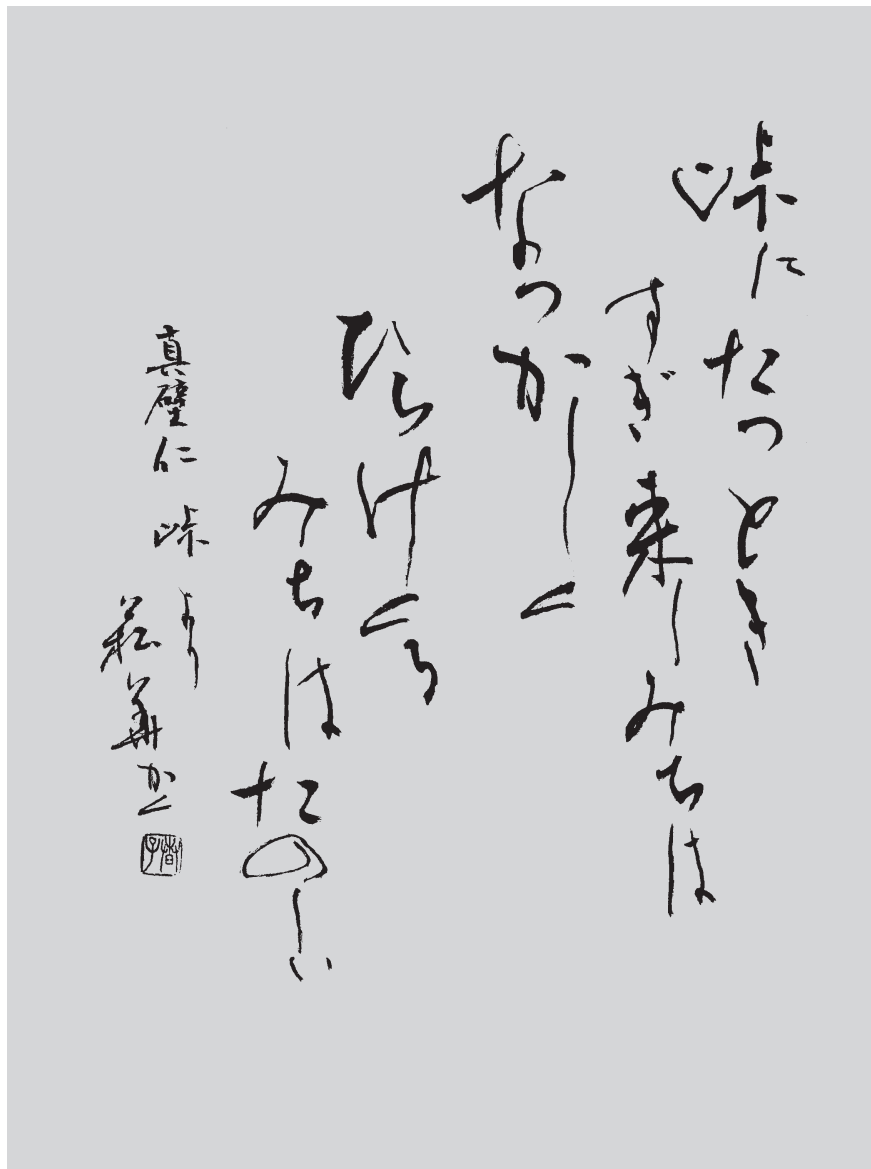 峠にたつとき
すぎ来しみちは
なつかしく
ひらけくる
みちはたのしい
真壁仁 峠 より
菘華かく